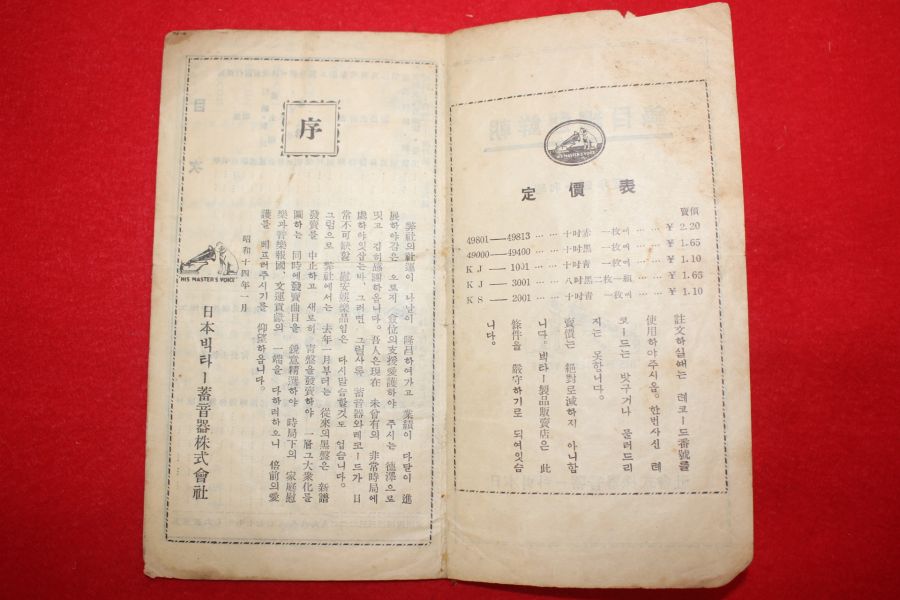 HIS MASTER'S VOICE
定價表
賣價
49801—49813 …… 十吋赤 一枚에 …… ¥ 2.20
49000—49400 …… 十吋黑 一枚에 …… ¥ 1.65
KJ—1001 …… 十吋青 一枚에 …… ¥ 1.10
KJ—3001 …… 八吋黑二枚一組 …… ¥ 1.65
KS—2001 …… 十吋青 一枚에 …… ¥ 1.10
註文하실때는 레코드番號를
使用하야주시옵。한번사신 레
코ー드는 밧구거나 물러드리
지는 못합니다。
賣價는 絕對로減하지 아니합
니다。빅타ー製品販賣店은 此
條件을 嚴守하기로 되여잇슴
니다。
序
弊社의社運이 나날이 隆昌하여가고 業績이 다달이 進
展하야감은 오로지 僉位의支援愛護하야 주시는 德澤으로
밋고 깁히感謝하옵나다。吾人은現在 未曾有의 非常時局에
處하야잇삽는바、그러면 그럴사록 蓄音器와레코ー드가 日
常不可缺할 慰安娛樂品임은 다시말슴할것도 업슴니다。
그럼으로 弊社에서는 去年一月부터는 從來의黑盤은 新譜
發賣를 中止하고 새로히 靑盤을發賣하야 一層그大衆化를
圖하는 同時에發賣曲目을 銳意精選하야 時局下의 家庭慰
樂과音樂報國、文運貢獻의 一端을 다하려하오니 倍前의愛
護를 베프러주시기를 仰望하옵니다。
昭和十四年一月
HIS MASTER'S VOICE
日本빅타ー蓄音器株式會社